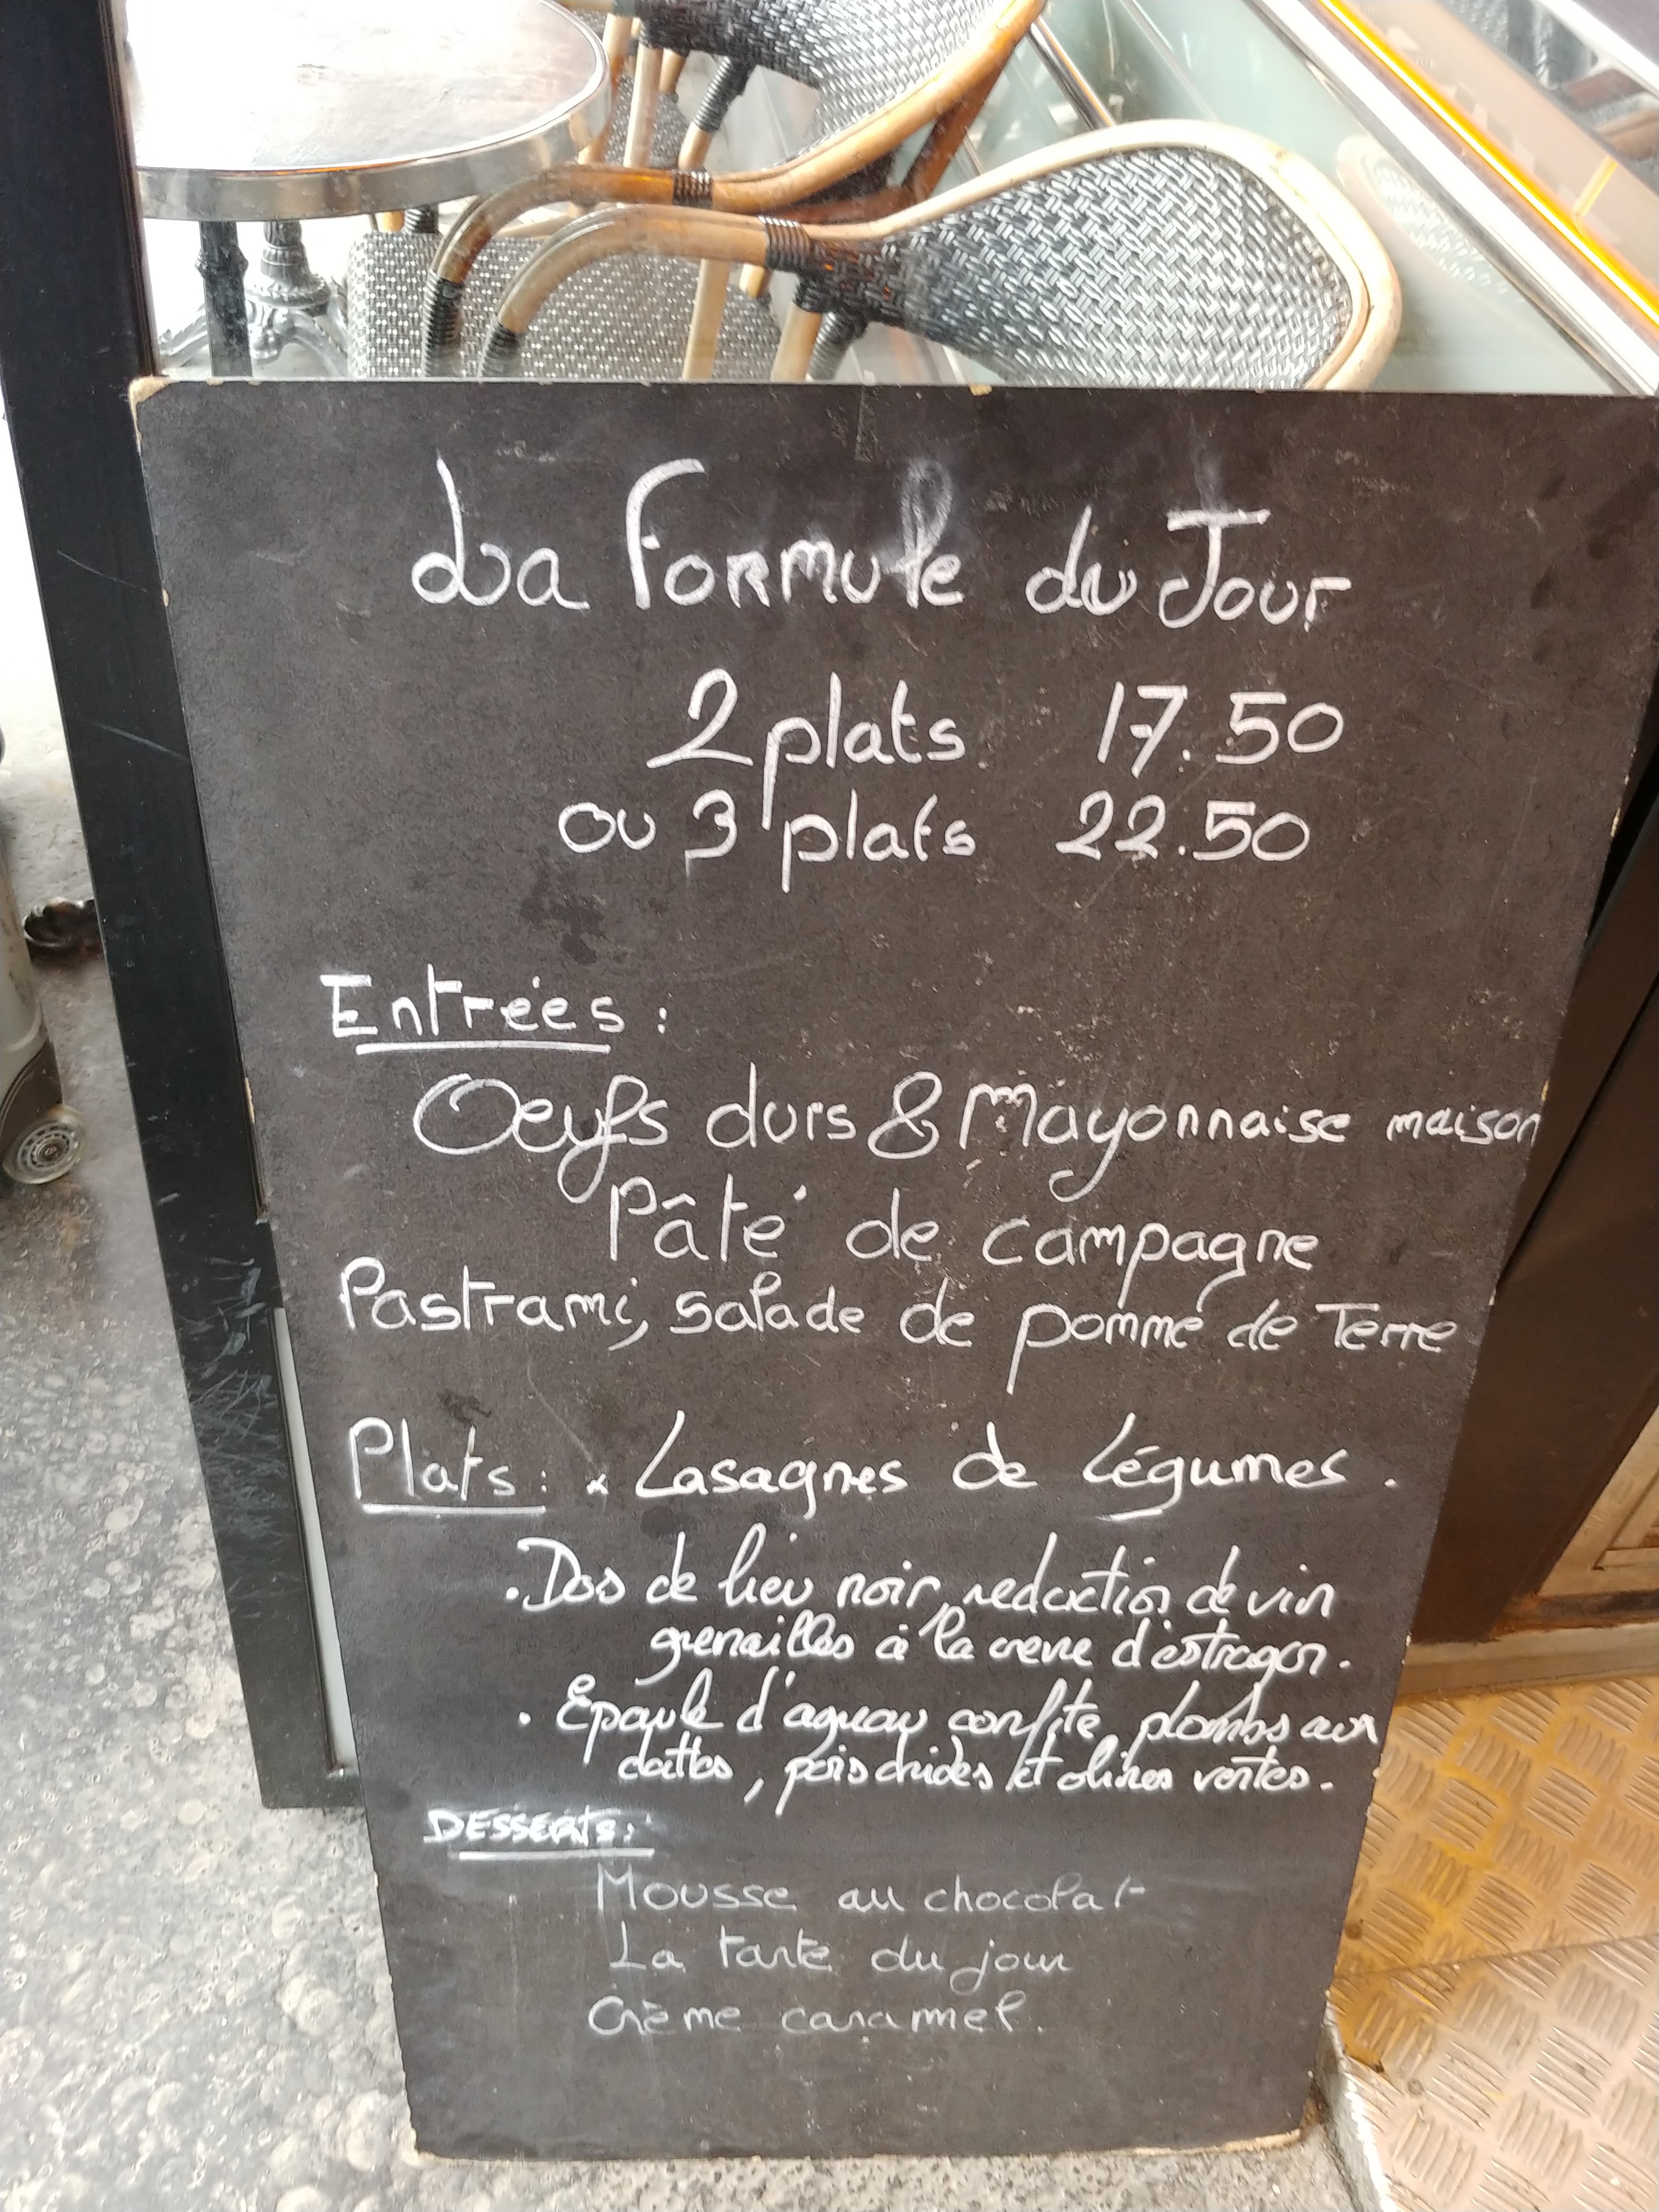 La Formule du Jour
2 plats 17.50
ou 3 plats 22.50
Entrées :
Oeufs durs & Mayonnaise maison
Pâté de campagne
Pastrami, salade de pomme de Terre
Plats : × Lasagnes de Légumes .
. Dos de lieu noir, reduction de vin
grenailles à la creme d'estragon .
. Epaule d'agneau confite, plombs aux
dattes , pois chiches et olives vertes .
DESSERTS :
Mousse au chocolat
La tarte du jour
Crème caramel .